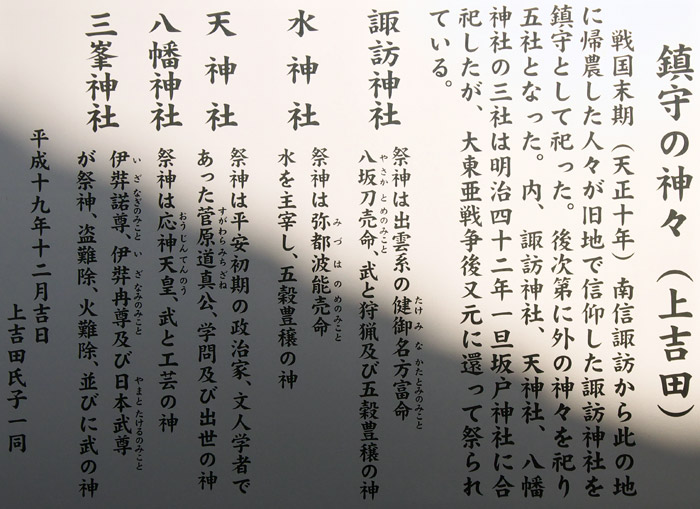 鎮守の神々（上吉田）
戦国末期（天正十年）南信諏訪から此の地
に帰農した人々が旧地で信仰した諏訪神社を
鎮守として祀った。後次第に外の神々を祀り
五社となった。内、諏訪神社、天神社、八幡
神社の三社は明治四十二年一旦坂戸神社に合
祀したが、大東亜戦争後又元に還って祭られ
ている。
諏訪神社
祭神は出雲系の健御名方富命
たけみなかたとみのみこと
八坂刀売命、武と狩猟及び五穀豊穣の神
やさかとめのみこと
水神社
祭神は弥都波能売命
みづはのめのみこと
水を主宰し、五穀豊穣の神
天神社
祭神は平安初期の政治家、文人学者で
あった菅原道真公、学問及び出世の神
すがわらみちざね
八幡神社
祭神は応神天皇、武と工芸の神
おうじんてんのう
三峯神社
伊弉諾尊、伊弉冉尊及び日本武尊
いざなぎのみこと いざなみのみこと やまとたけるのみこと
が祭神、盗難除、火難除、並びに武の神
平成十九年十二月吉日
上吉田氏子一同